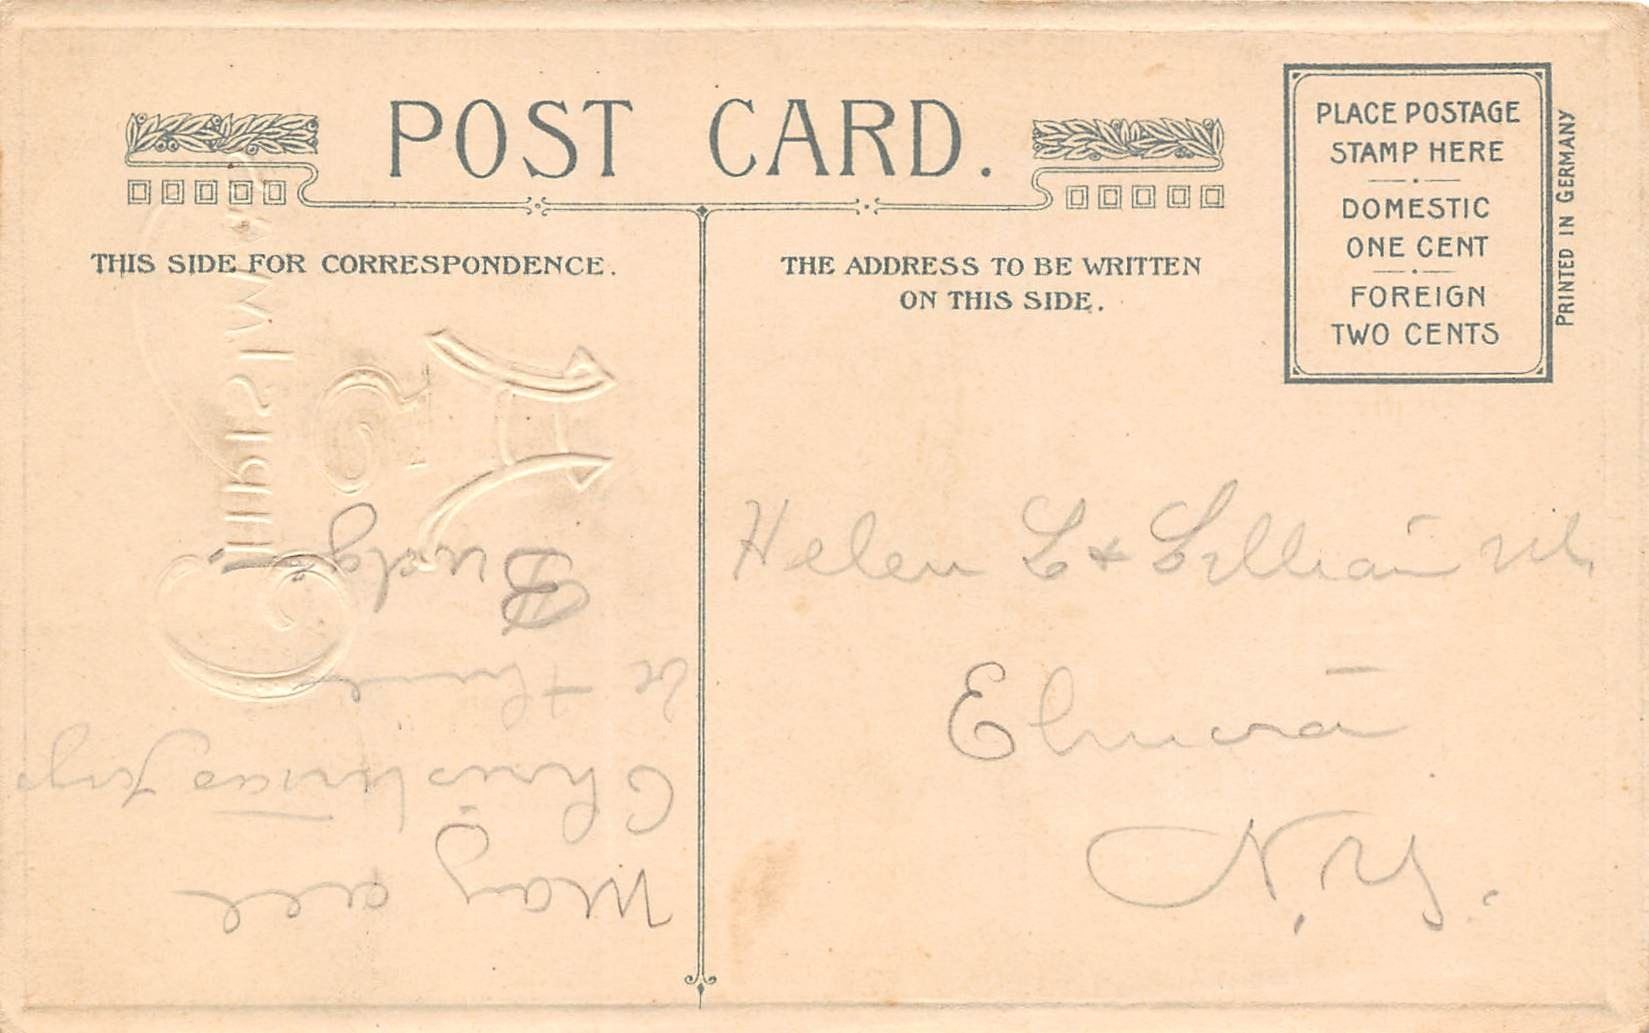 POST CARD.
THIS SIDE FOR CORRESPONDENCE.
THE ADDRESS TO BE WRITTEN
ON THIS SIDE.
PLACE POSTAGE
STAMP HERE
DOMESTIC
ONE CENT
FOREIGN
TWO CENTS
PRINTED IN GERMANY
May all
Christmas joys
be thine
Budge
Helen L & Lillian
Elmira
N.Y.